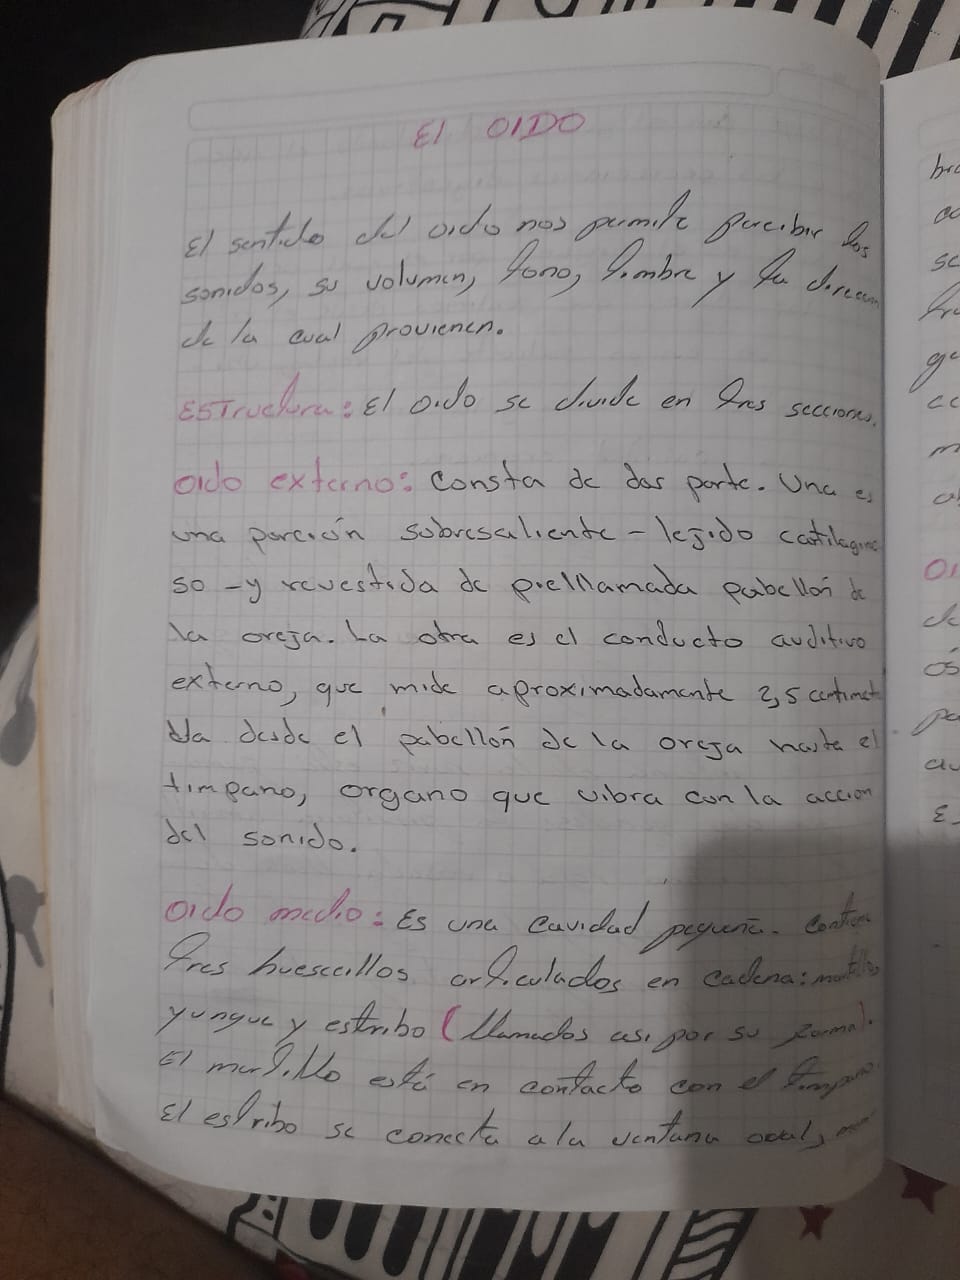 El OIDO
El sentido del oido nos permite percibir los
sonidos, su volumen, tono, timbre y la direccion
de la cual provienen.
ESTructura: El oido se divide en tres secciones.
oido externo: Consta de dos parte. Una es
una porción sobresaliente - tejido cartilagino
so - y revestida de piel llamada pabellón de
la oreja. La otra es el conducto auditivo
externo, que mide aproximadamente 2,5 centimet
Va desde el pabellón de la oreja hasta el
timpano, organo que vibra con la accion
del sonido.
Oido medio: Es una Cavidad pequeña. Contien
tres huesecillos articulados en cadena: martillo
yunque y estribo (llamados asi por su forma).
El martillo está en contacto con el timpano.
El estribo se conecta a la ventana oval,
bra
se
ge
cc
m
OI
de
ós
pa
au
E